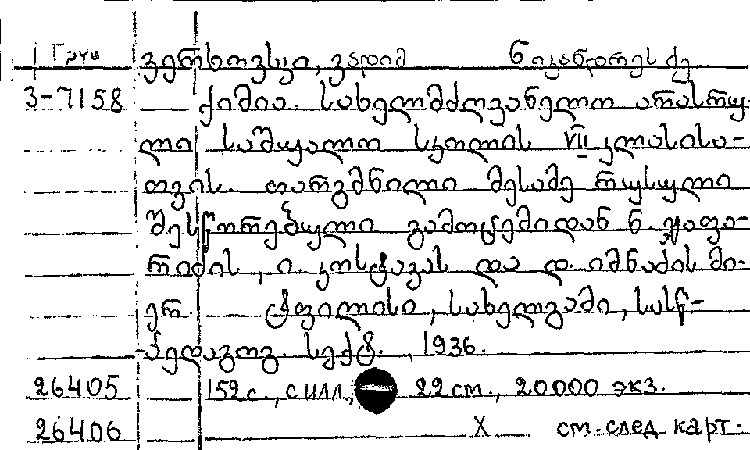 Груз ვერხოვსკი, ვადიმ ნიკანდრეს ძე
3-7158 ქიმია. სახელმძღვანელო არასრუ-
ლი საშუალო სკოლის VII კლასისა-
თვის. თარგმნილი მესამე რუსული
შესწორებული გამოცემიდან ნ. ჯაფა-
რიძის, ი. კოსტავას და დ. იმნაძის მი-
ერ. ტფილისი, სახელგამი, სასწ-
პედაგოგ. სექტ., 1936.
26405 152 с., с илл., 22 см., 20000 экз.
26406 X см. след. карт.